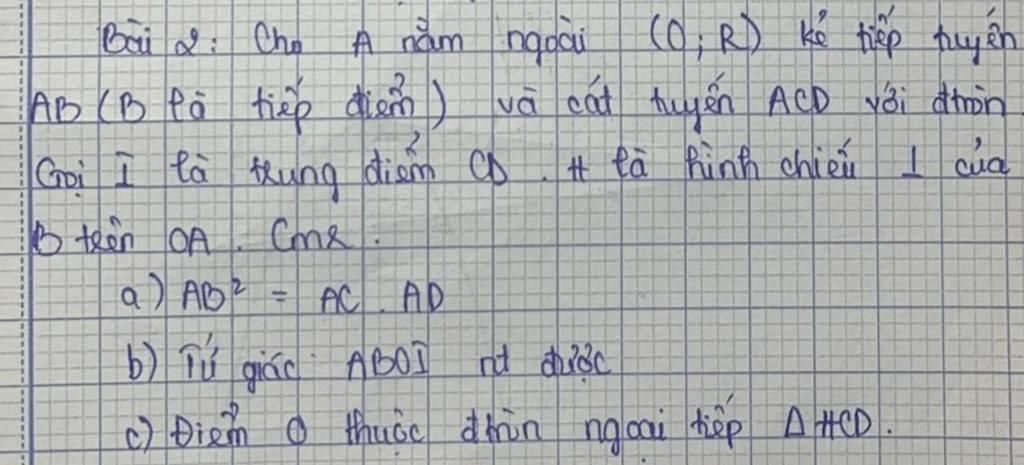 Bài 2: Cho A nằm ngoài (O; R) kẻ tiếp tuyến
AB (B là tiếp điểm) và cát tuyến ACD với đtròn
Gọi I là trung điểm CD. H là hình chiếu ⊥ của
B trên OA. Cmr:
a) AB² = AC. AD
b) Tứ giác ABOI nt được
c) Điểm O thuộc đtròn ngoại tiếp Δ HCD.